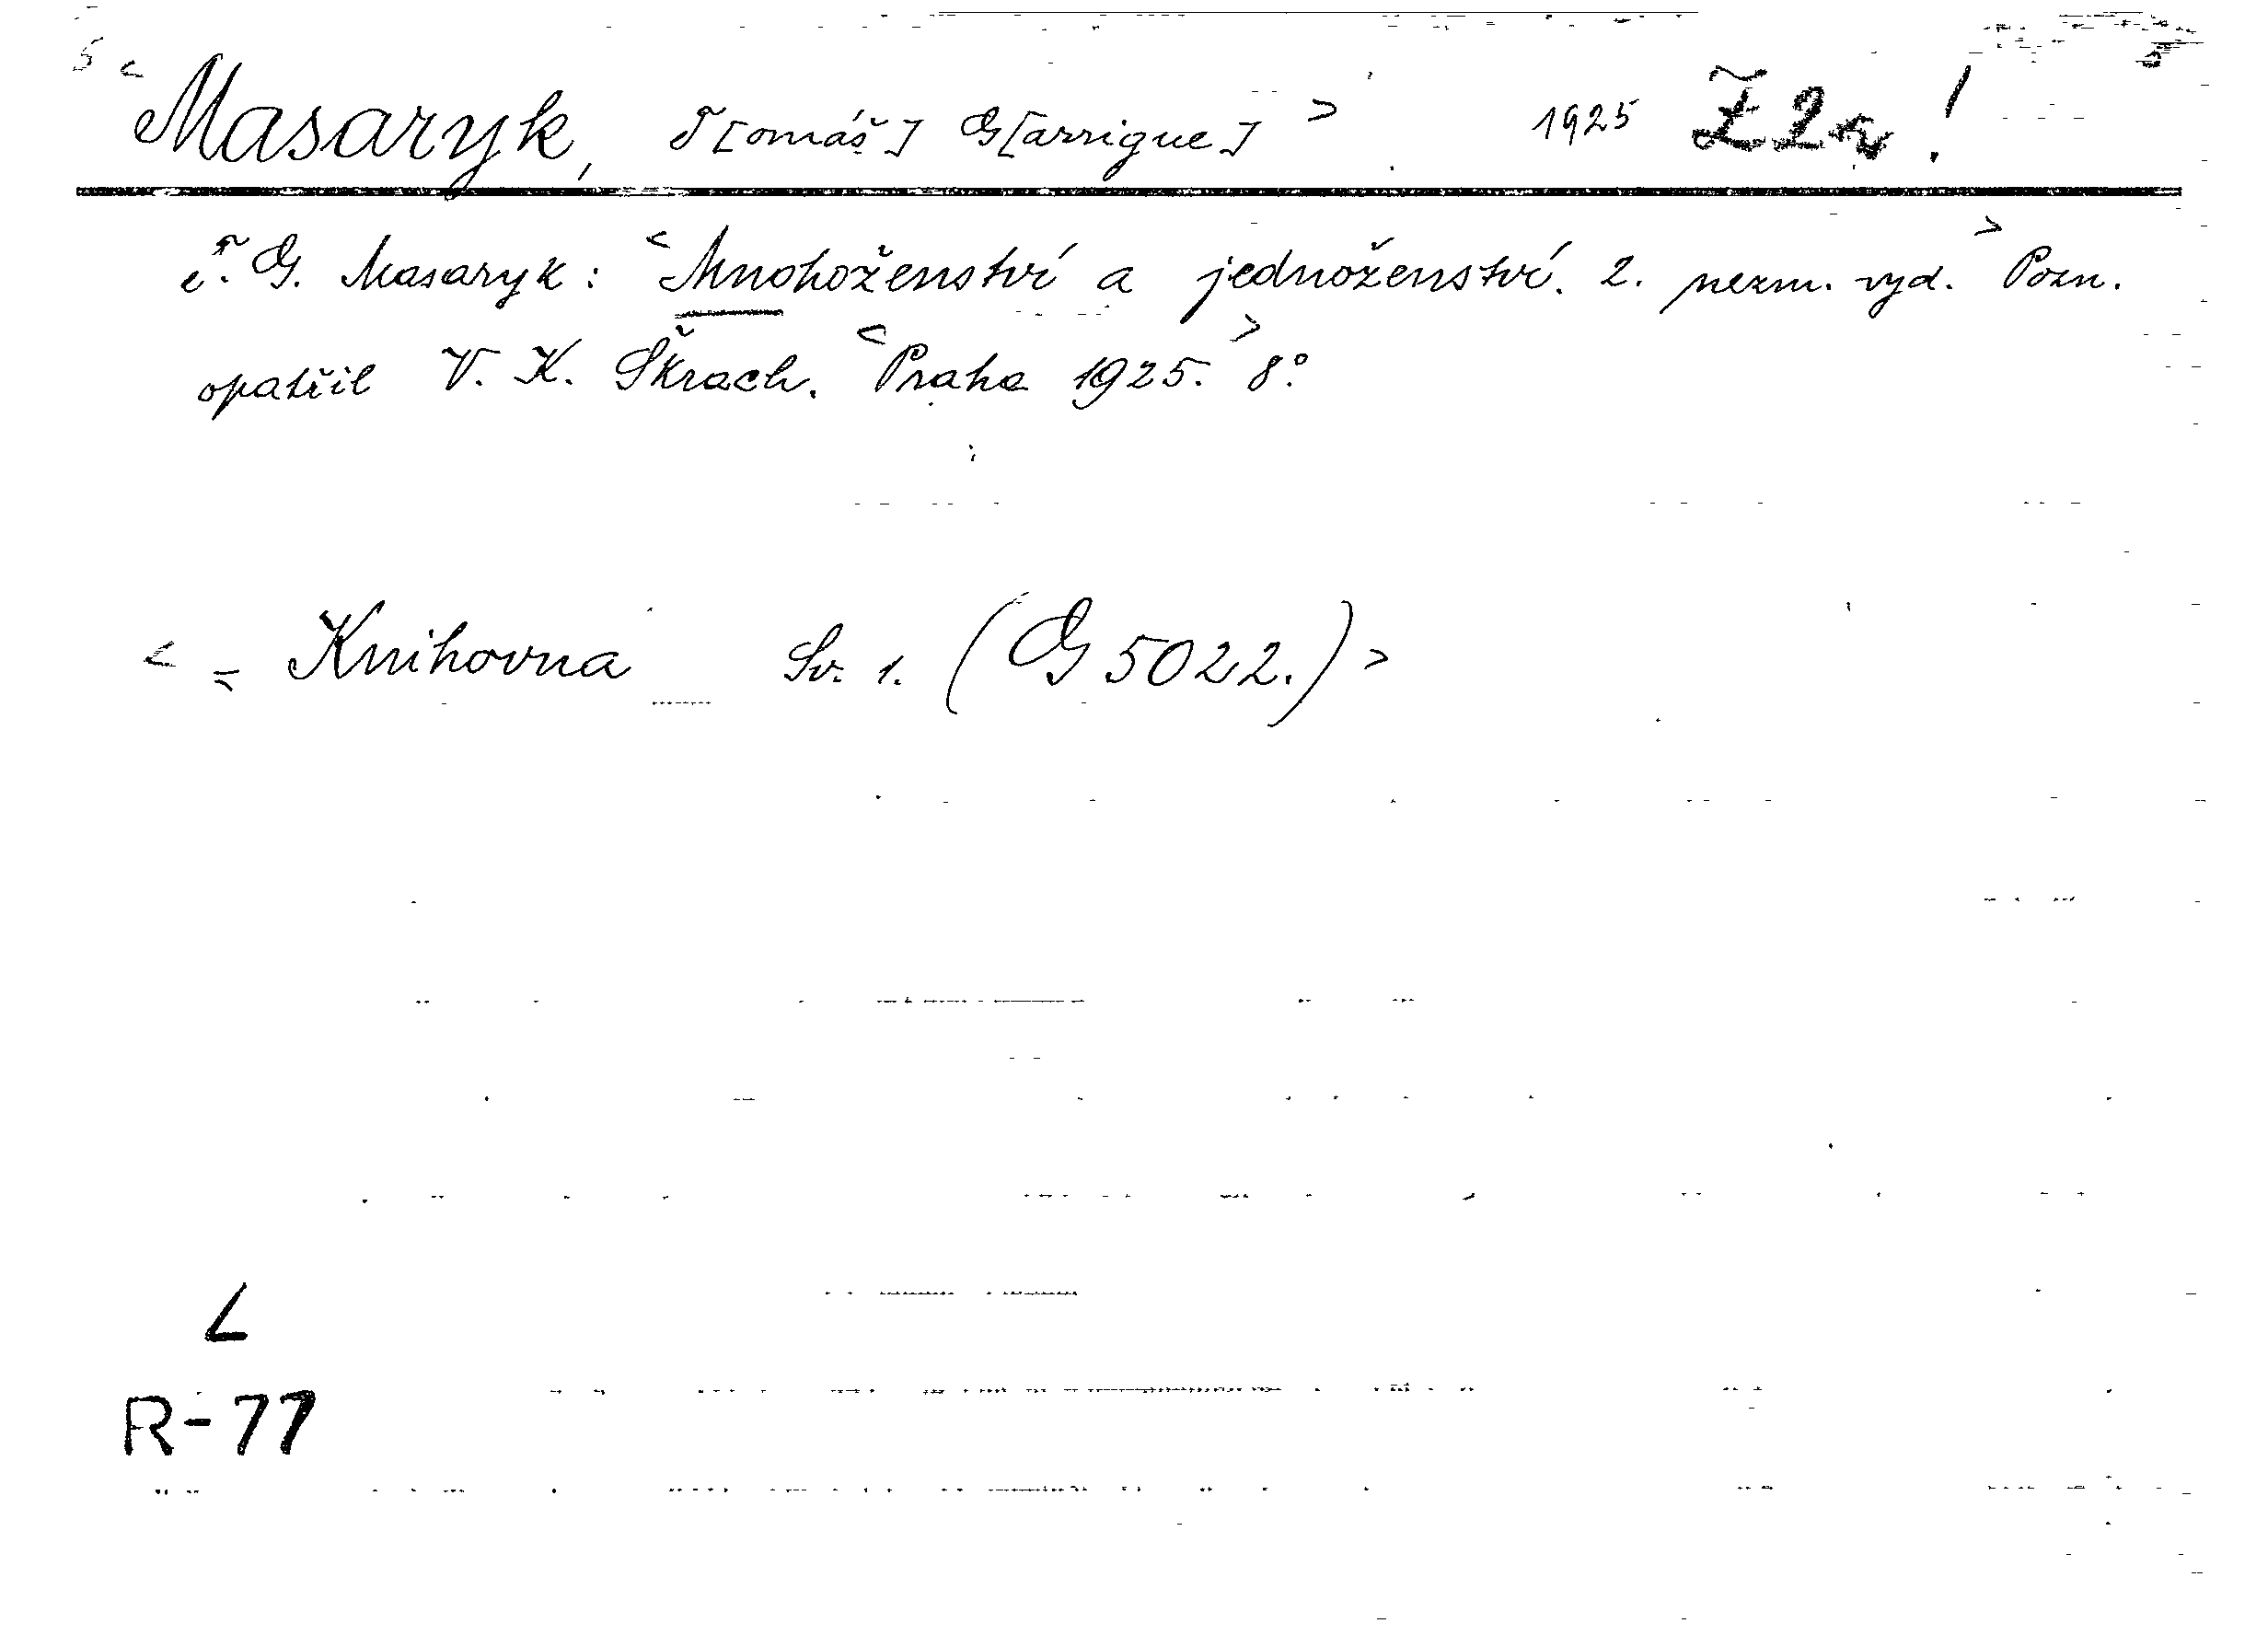 < Masaryk, T[omáš] G[arrigue] > 1925 !
T. G. Masaryk: <Mnohoženství a jednoženství. 2. nezm. vyd.> Pozn.
opatřil V. K. Škrach. <Praha 1925.> 8°.
< = Knihovna Sv. 1. (G 5022.) >
L
R-77